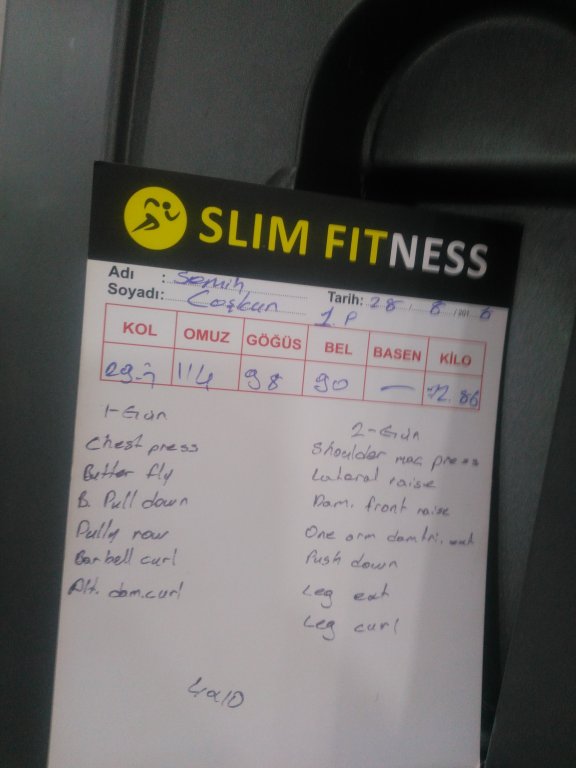 SLIM FITNESS
Adı : Semih
Soyadı: Coşkun
Tarih: 28. 8. /201 6
1. P
KOL OMUZ GÖĞÜS BEL BASEN KİLO
114 98 90 — 72.86
1-Gün
Chest press
Butter fly
B. Pull down
Pully row
Barbell curl
Alt. dam.curl
2-Gün
Shoulder mac press
Lateral raise
Dam. front raise
One arm dam tri. ext
Push down
Leg ext
Leg curl
4x10